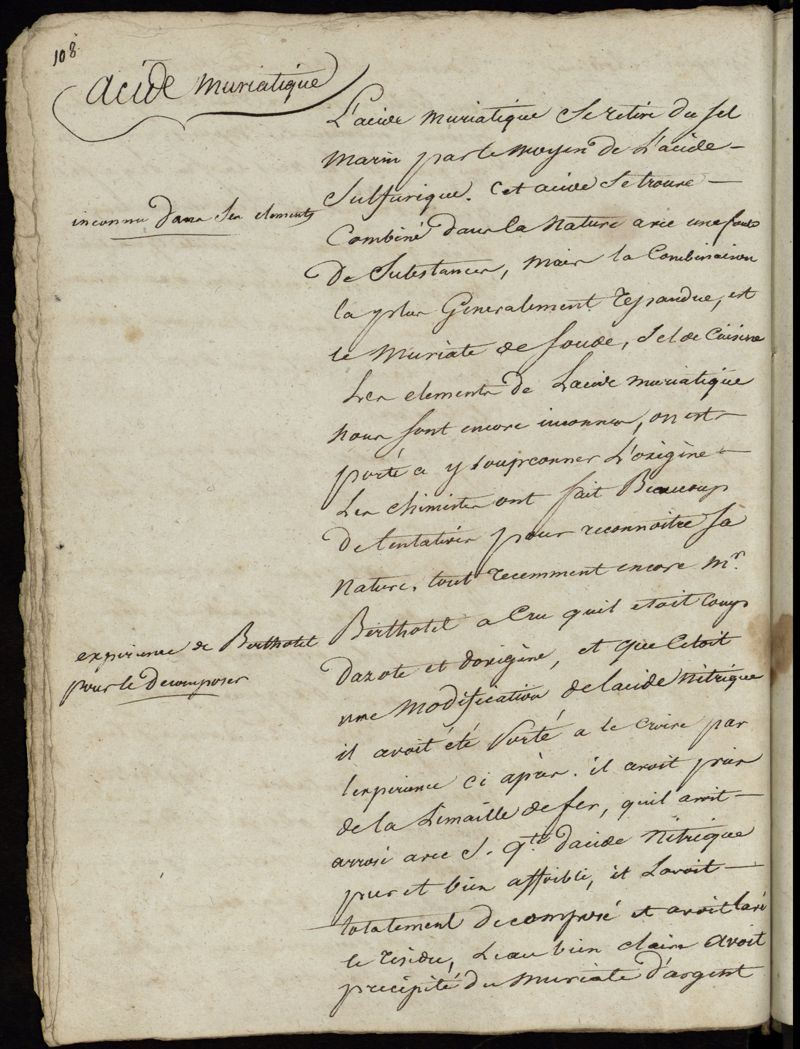 108
acide muriatique
L'acide muriatique se retire du sel
marin par le moyen de L'acide
Sulfurique. Cet acide se trouve
inconnu dans ses elements
Combiné dans la nature avec une foule
de Substances, mais la Combinaison
la plus Generalement repandue, est
le muriate de soude, sel de Cuisine
Les elements de L'acide muriatique
nous sont encore inconnus, on est
porté a y soupconner L'origène
Les chimistes ont fait Beaucoup
de tentatives pour reconnoitre sa
nature, tout recemment encore Mr.
Berthotel a Cru quil etoit comp
dazote et dorigène, et que Cetoit
experience de Berthotel
pour le Decomposer
une modification de lacide nitrique
il avoit été porté a le croire par
lexperience ci après. il avoit pris
de la Limaille de fer, quil avoit
arrosé avec S. qte dacide nitrique
pur et bien affoibli, il Lavoit
totalement decomposé et avoit lavé
le residu, Leau bien claire avoit
precipité du muriate d'argent